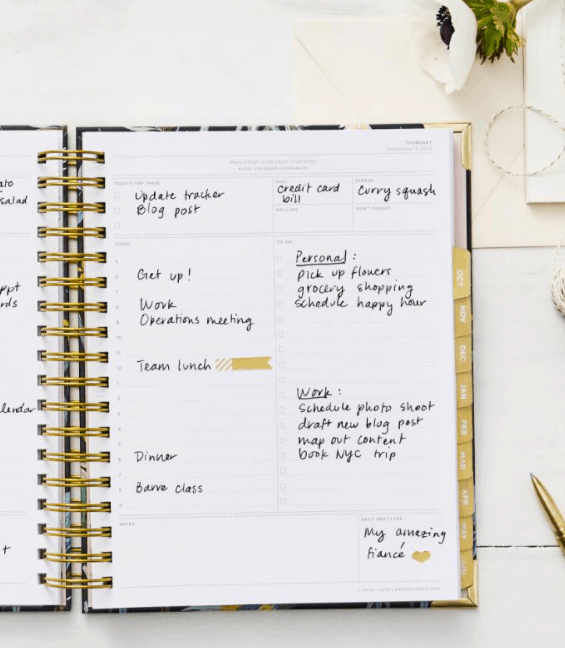 THURSDAY
TODAY'S TOP THREE
Update tracker
Blog post
DUE:
Credit card
bill
DINNER:
Curry squash
DOLLARS
DON'T FORGET
TODAY
Get up!
Work
Operations meeting
Team lunch
Dinner
Barre class
TO DO:
Personal:
pick up flowers
grocery shopping
schedule happy hour
Work:
schedule photo shoot
draft new blog post
map out content
book NYC trip
NOTES
DAILY GRATITUDE:
My amazing
fiancé
OCT
NOV
DEC
JAN
FEB
MAR
APR
MAY
JUN
salad